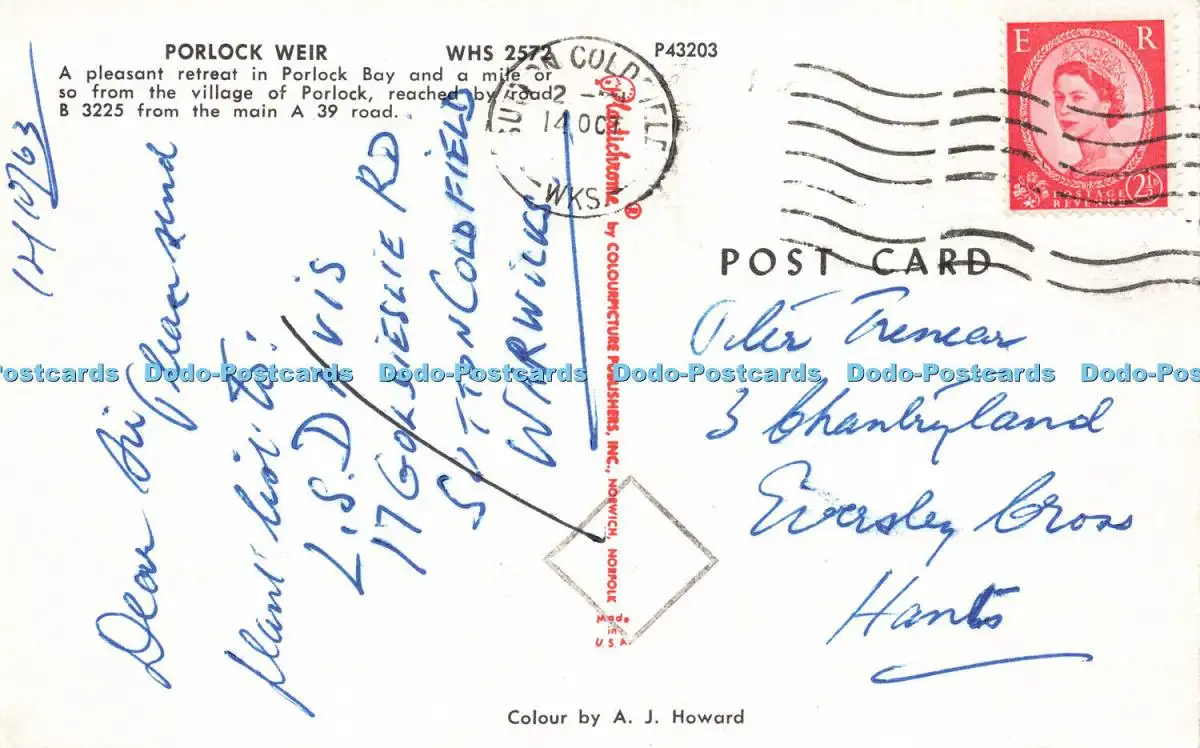 PORLOCK WEIR WHS 2572 P43203
A pleasant retreat in Porlock Bay and a mile or
so from the village of Porlock, reached by road
B 3225 from the main A 39 road.
14 10/63
Dear Sir Please send
plant list to:
L.S. DAVIS
17 GORDIESLIE RD
SUTTON COLDFIELD
WARWICKS
SUTTON COLDFIELD
2 -
14 OCT
WKS.
E R
POSTAGE
REVENUE
2½D
Plastichrome ® by COLOURPICTURE PUBLISHERS, INC., NORWICH, NORFOLK
Made
in
U.S.A.
POST CARD
Peter Trenear
3 Chantryland
Eversley Cross
Hants
Dodo-Postcards Dodo-Postcards Dodo-Postcards Dodo-Postcards Dodo-Postcards Dodo-Postcards
Colour by A. J. Howard